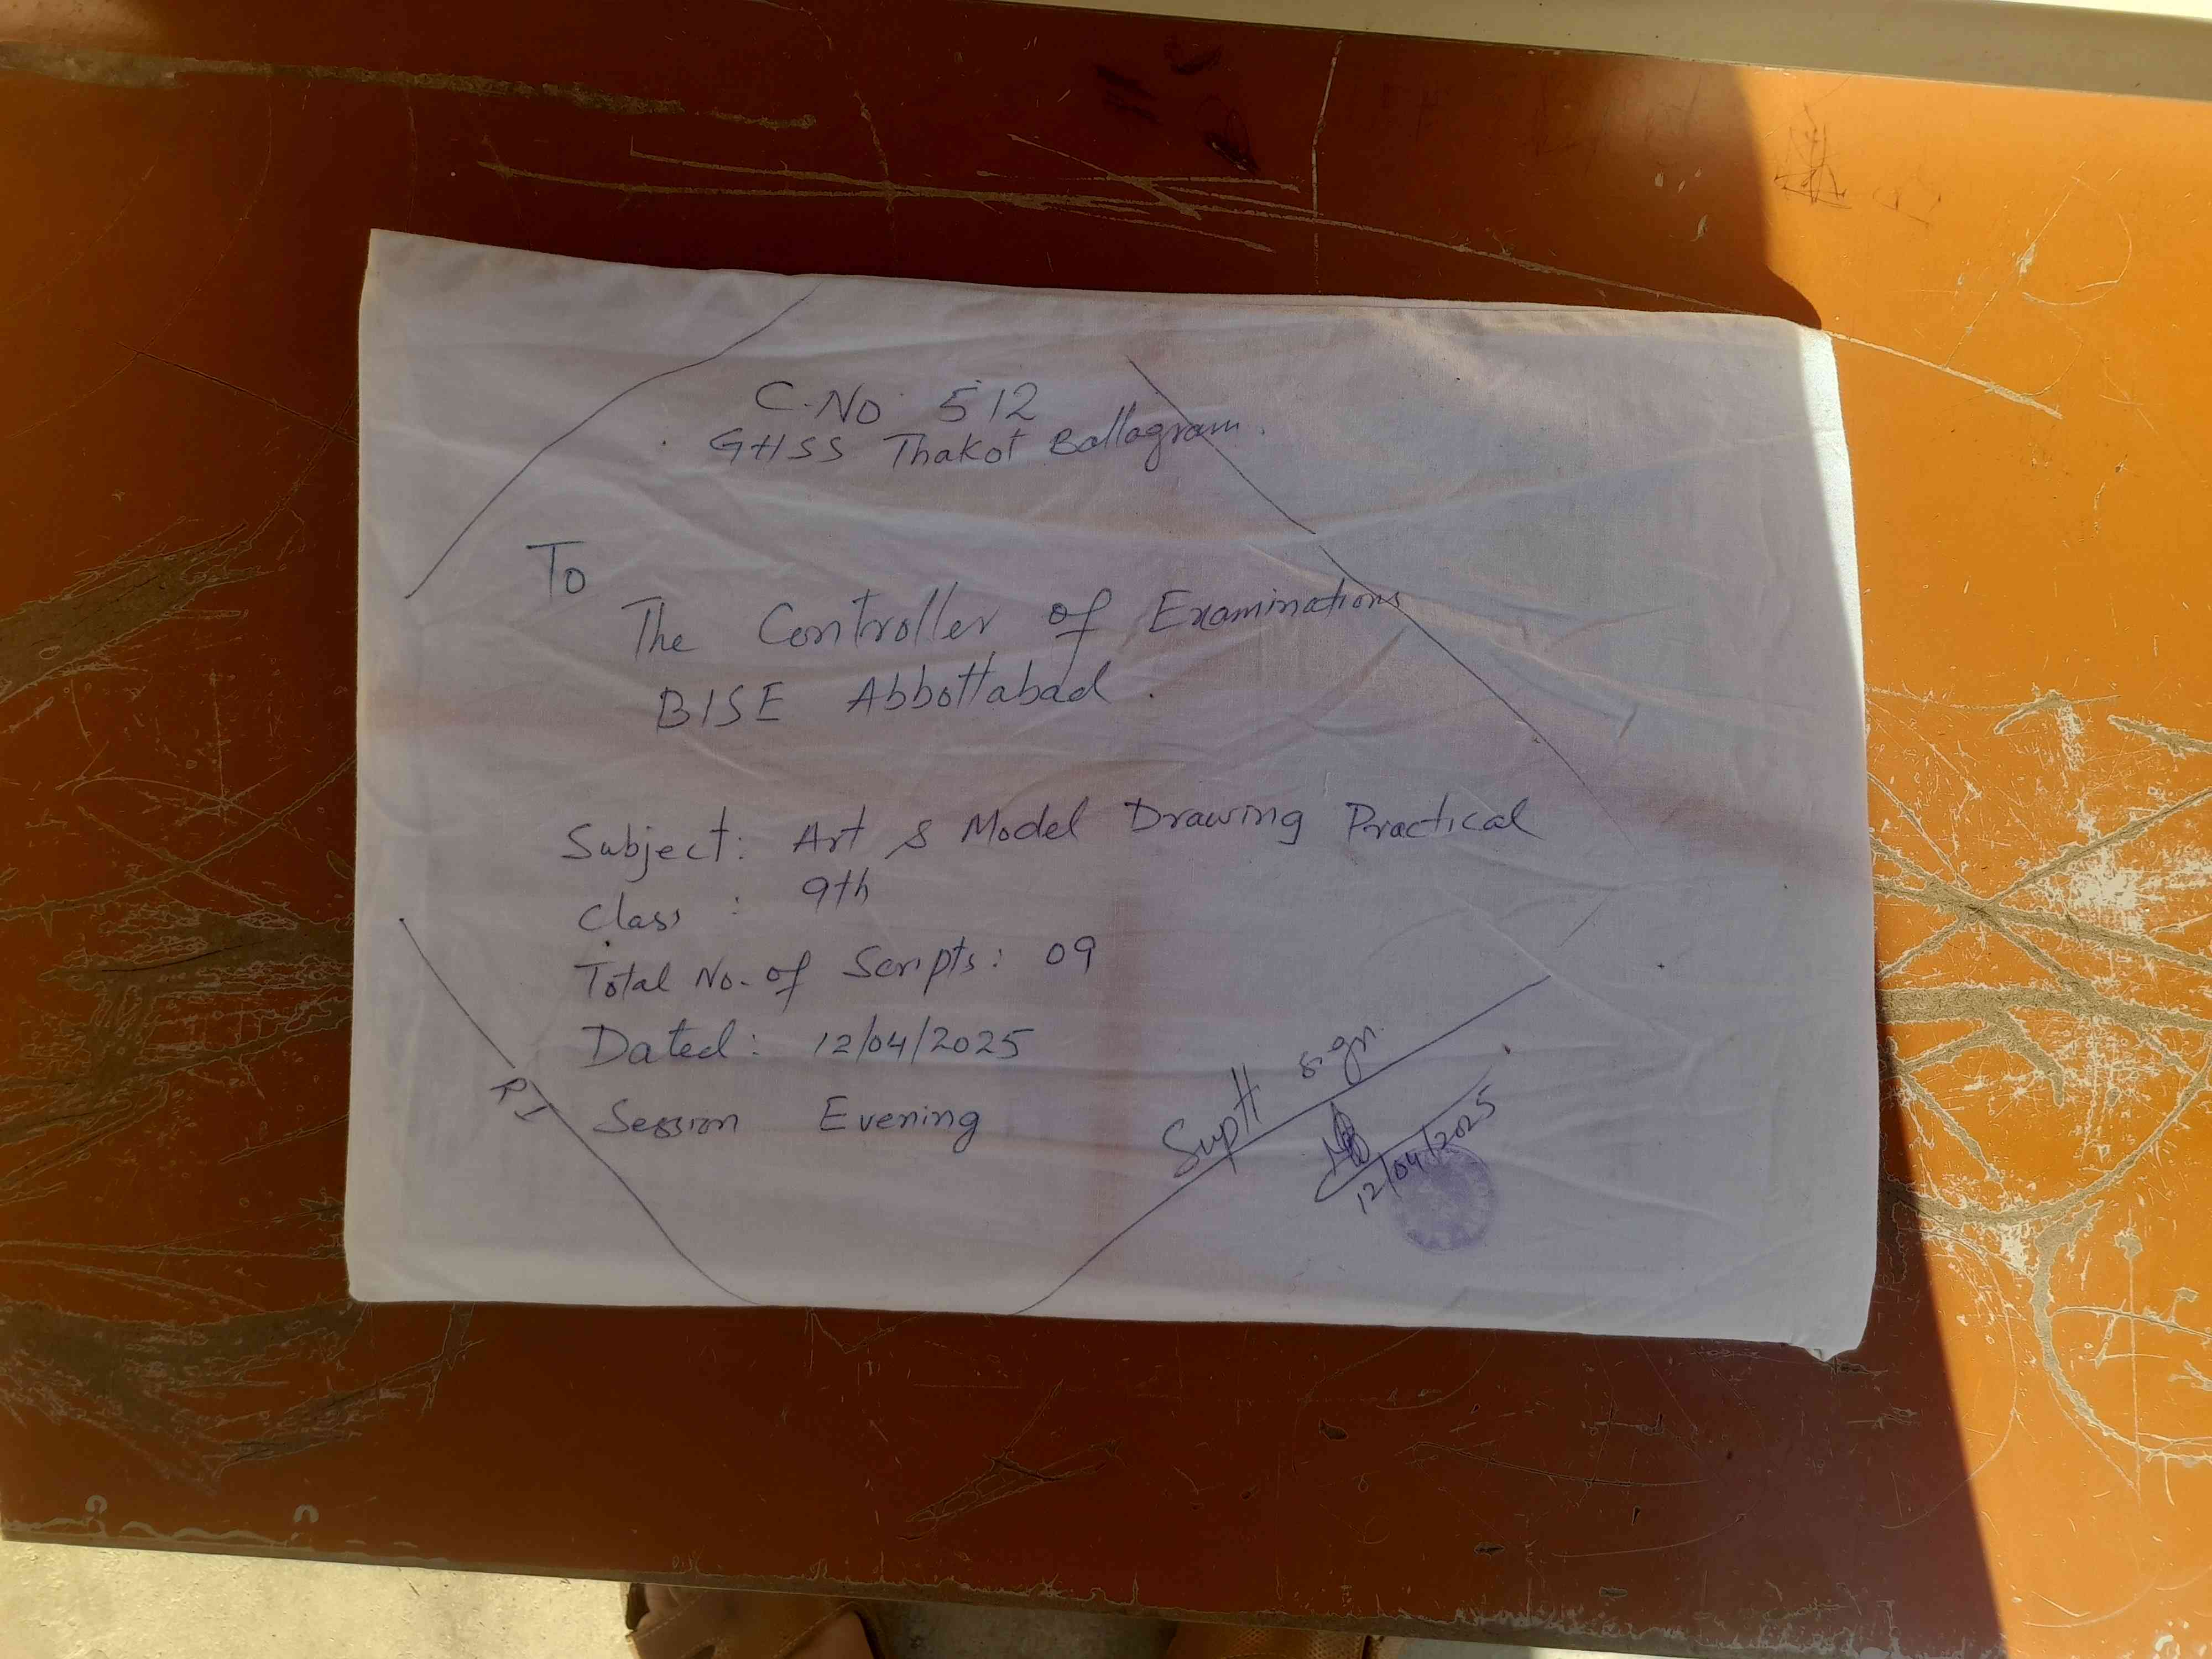 C.No. 512
GHSS Thakot Battagram.
To
The Controller of Examinations
BISE Abbottabad.
Subject: Art & Model Drawing Practical
Class : 9th
Total No. of Scripts: 09
Dated: 12/04/2025
Session Evening
RI
Suptt sign.
12/04/2025